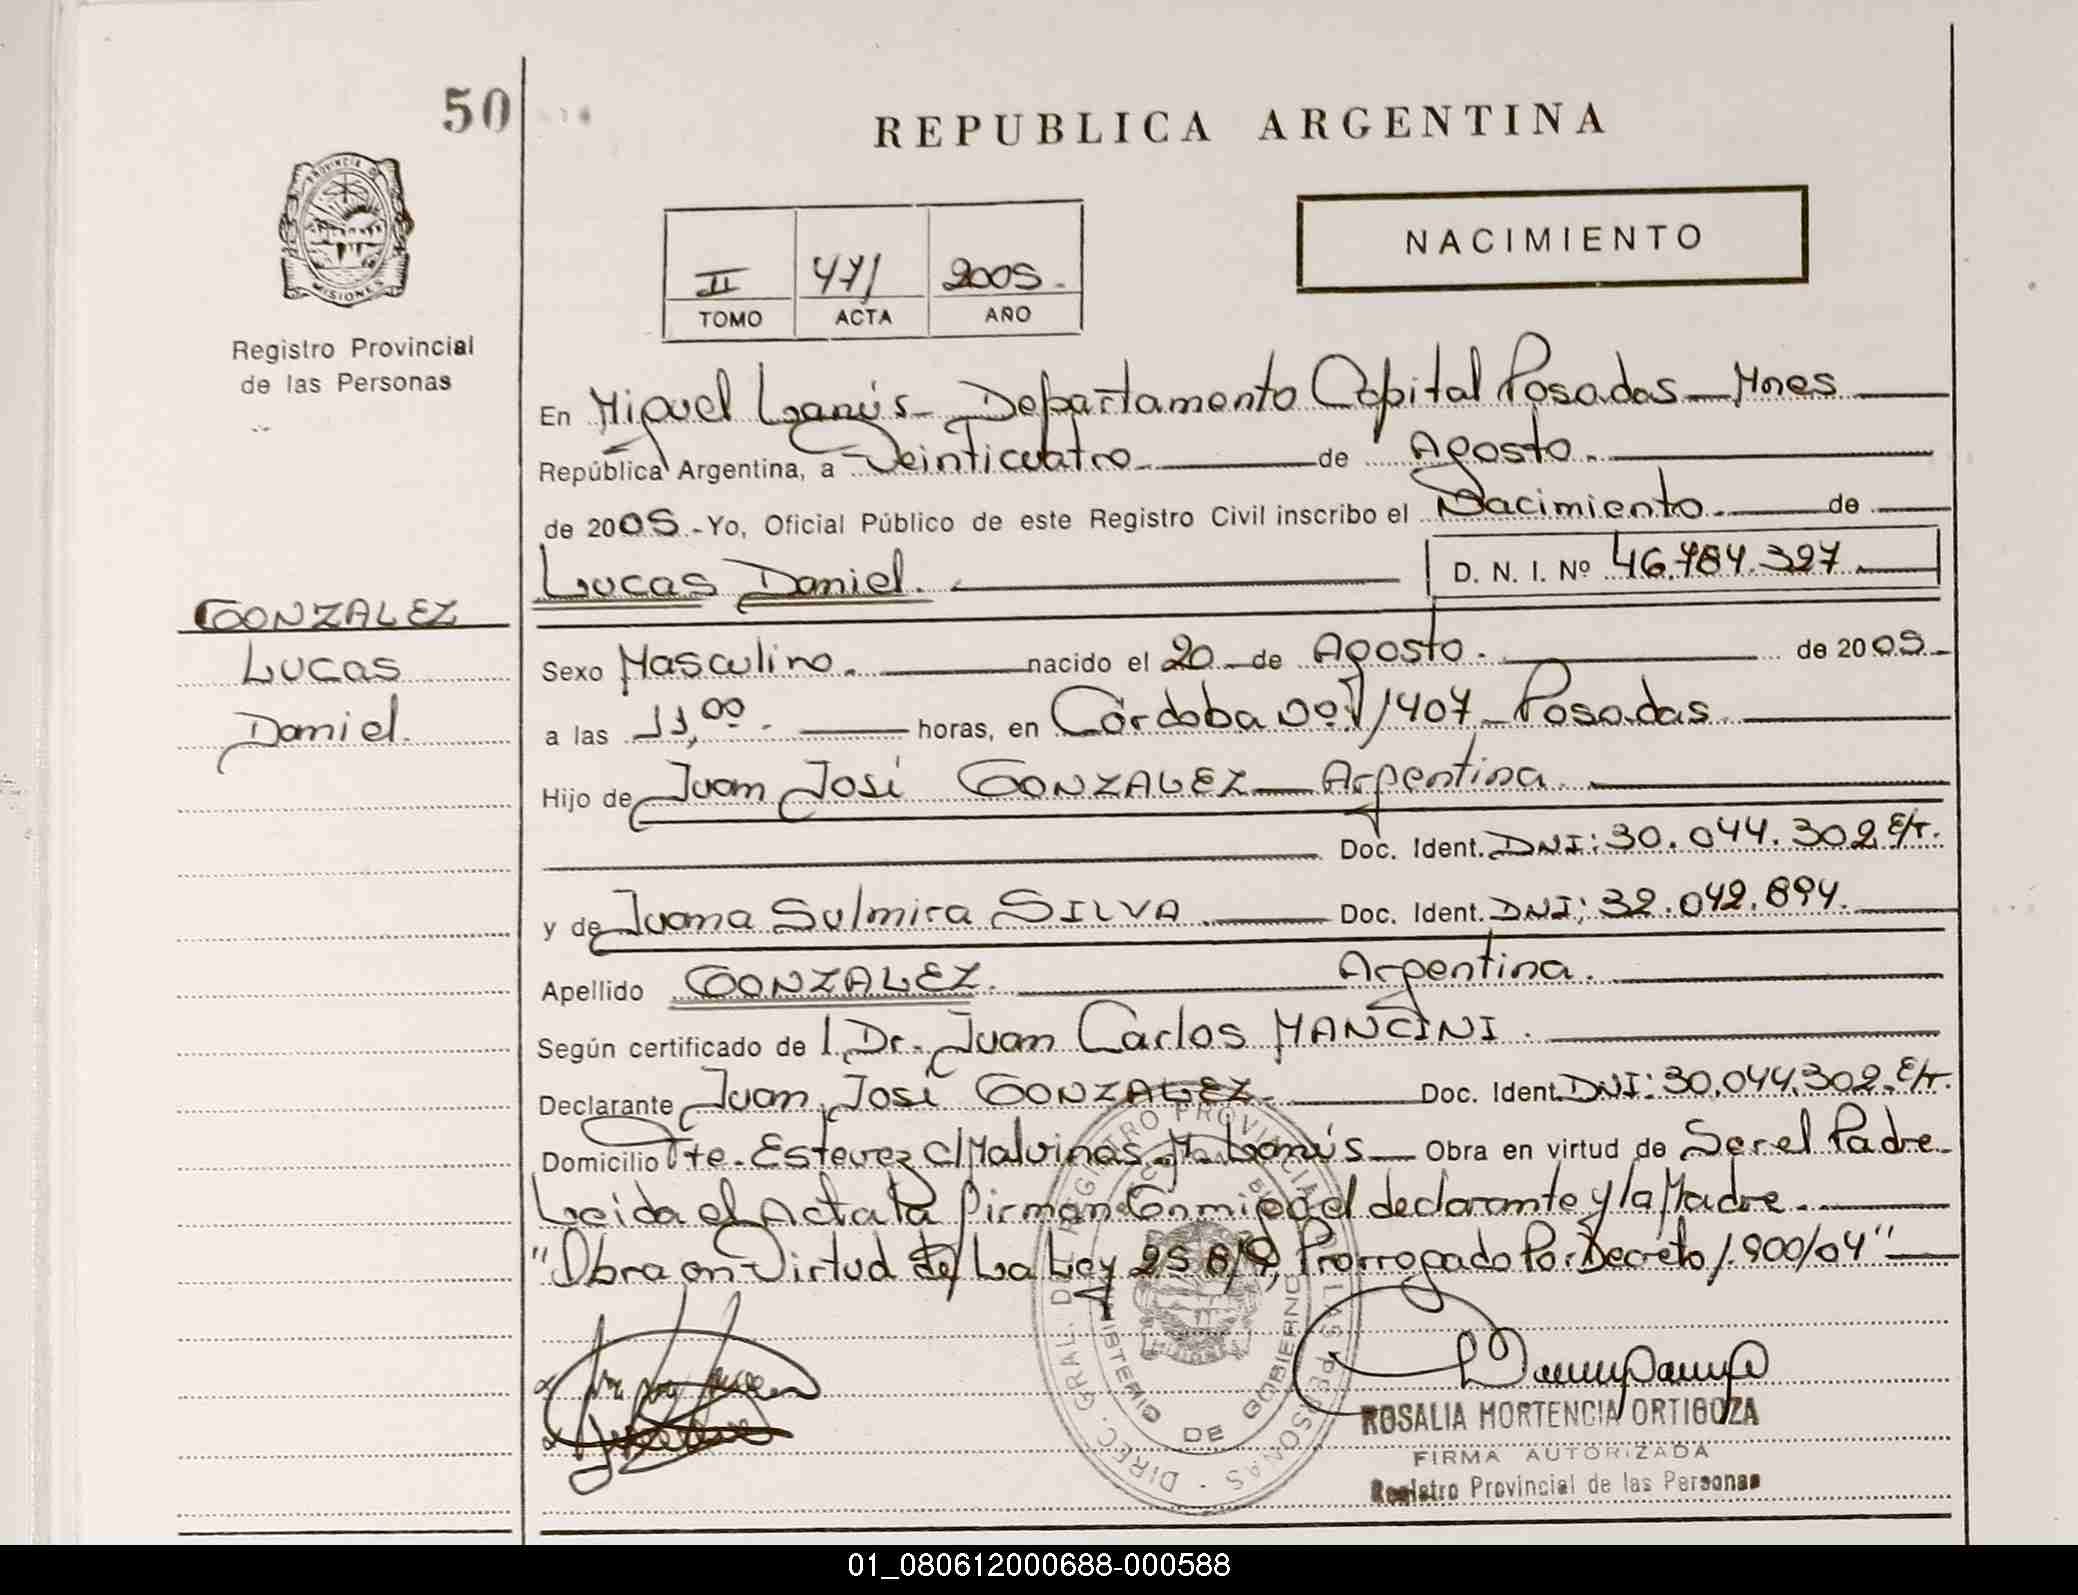 50
REPUBLICA ARGENTINA
PROVINCIA DE
MISIONES
Registro Provincial
de las Personas
NACIMIENTO
II 471 2005.
TOMO ACTA AÑO
En Miguel Lanús - Departamento Capital Posadas - Mnes
República Argentina, a Veinticuatro. de Agosto.
de 2005.- Yo, Oficial Público de este Registro Civil inscribo el Nacimiento. de
Lucas Daniel. D. N. I. Nº 46.784.327.
GONZALEZ
Lucas
Daniel.
Sexo Masculino. nacido el 20 de Agosto. de 2005.
a las 11,00. horas, en Córdoba Nº 1407 - Posadas
Hijo de Juan José GONZALEZ - Argentina.
Doc. Ident. DNI: 30.044.302 E/T.
y de Juana Sulmira SILVA. Doc. Ident. DNI: 32.042.894.
Apellido GONZALEZ. Argentina.
Según certificado de l Dr. Juan Carlos MANCINI.
Declarante Juan José GONZALEZ. Doc. Ident. DNI: 30.044.302. E/T.
Domicilio Tte. Estevez c/Malvinas M. Lanús - Obra en virtud de Ser el Padre.
Leida el Acta la firman Conmigo el declarante y la Madre.
"Obra en Virtud de La Ley 25.819, Prorrogado Por Decreto 1.900/04"
DIREC. GRAL. DEL REGISTRO PROVINCIAL DE LAS PERSONAS
MINISTERIO DE GOBIERNO
ROSALIA HORTENCIA ORTIGOZA
FIRMA AUTORIZADA
Registro Provincial de las Personas
01_080612000688-000588